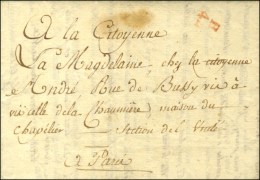 A la Citoyenne
La Magdelaine, chez la citoyenne
André, Rue de Bussy vis à
vis celle de la Chaumière maison du
Chapelier Section de l'Unité
A Paris